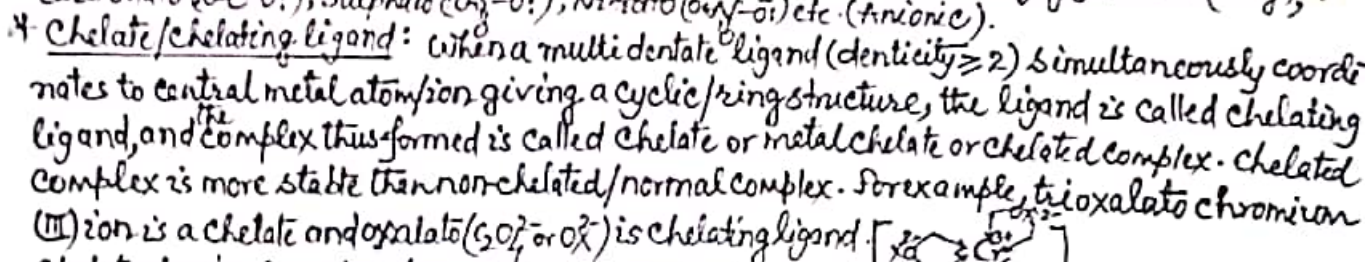 (Anionic).
* Chelate/chelating ligand: When a multidentate ligand (denticity ≥ 2) simultaneously coordi-
nates to central metal atom/ion giving a cyclic/ring structure, the ligand is called chelating
ligand, and the complex thus formed is called chelate or metal chelate or chelated complex. Chelated
complex is more stable than non-chelated/normal complex. For example, trioxalato chromium
(III) ion is a chelate and oxalato (C₂O₄²⁻ or OX²⁻) is chelating ligand.